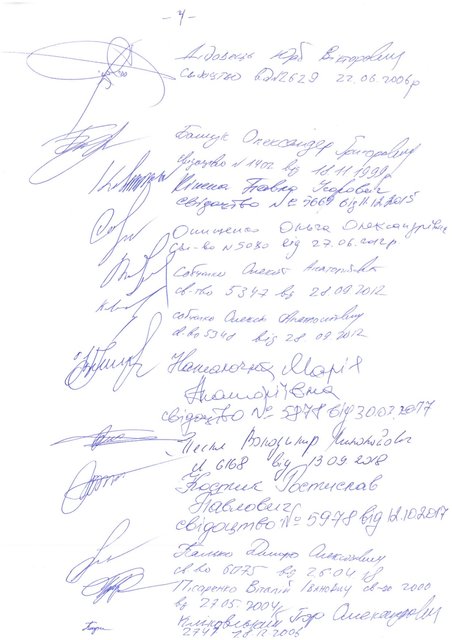 - 4 -
Юрій Вікторович
свідоцтво 2629 22.06.2006р
Олександр Григорович
свідоцтво N 1402 від 18.11.1999р
Павло Ігорович
свідоцтво № 5669 від 11.12.2015
Онищенко Ольга Олександрівна
св-во N 5080 від 27.06.2012р
Собчико Олексій Анатолійович
св-тво 5347 від 28.09.2012
Олексій Анатолійович
5348 від 28 09.2012
Наталочка Марія
Анатоліївна
свідоцтво № 5878 від 30.03.2017
Володимир Миколайович
N 6168 від 13.09.2018
Ростислав
Павлович
свідоцтво № 5978 від 12.10.2017
Дмитро Олексійович
св во 6075 від 26.04.18
Писаренко Віталій Іванович св-во 2000
від 27.05.2004
Ігор Олександрович
2747 28.12.2006